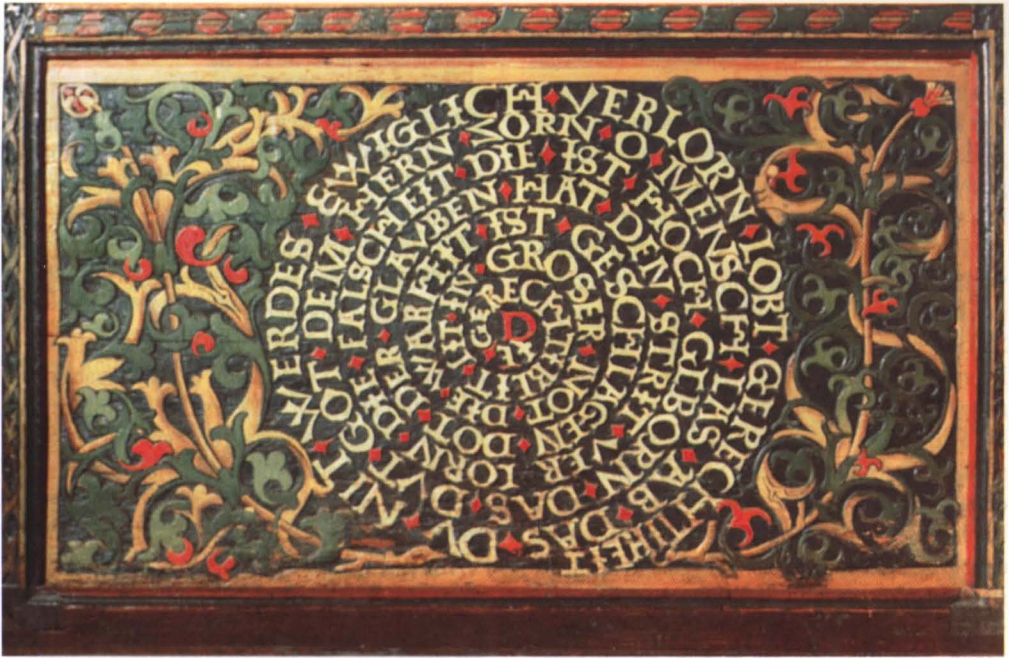 DIE GERECHTIKEIT LIT IN GROSER NOT DIE WARHEIT IST GESCHLAGEN DOT DER GLAVBEN HAT DEN STRIT VERLORN DIE FALSCHEIT DIE IST HOCH GEBORN DAS DVT GOT DEM HERN ZORN O MENSCH LAS AB DAS DV NIT WERDES EWIGLICH VERLORN LOBT GERECHTIKEIT